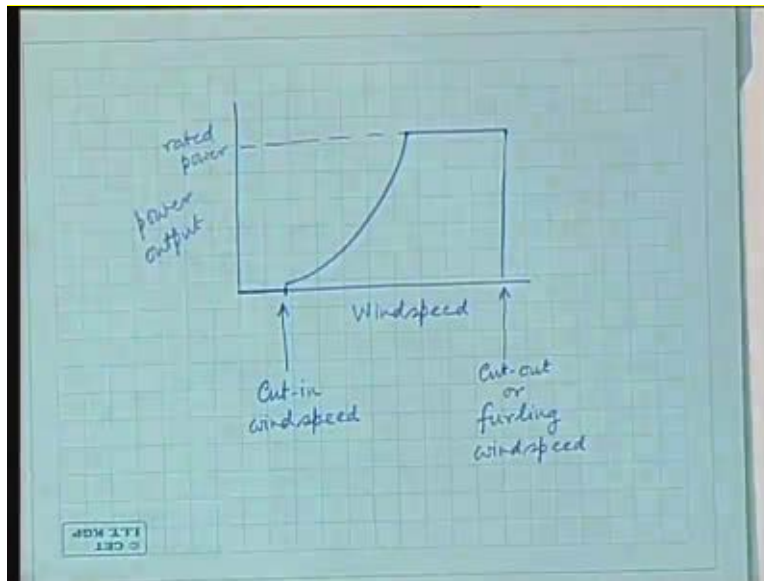 rated
power
power
output
Windspeed
Cut-in
windspeed
Cut-out
or
furling
windspeed
© CET
I.I.T. KGP